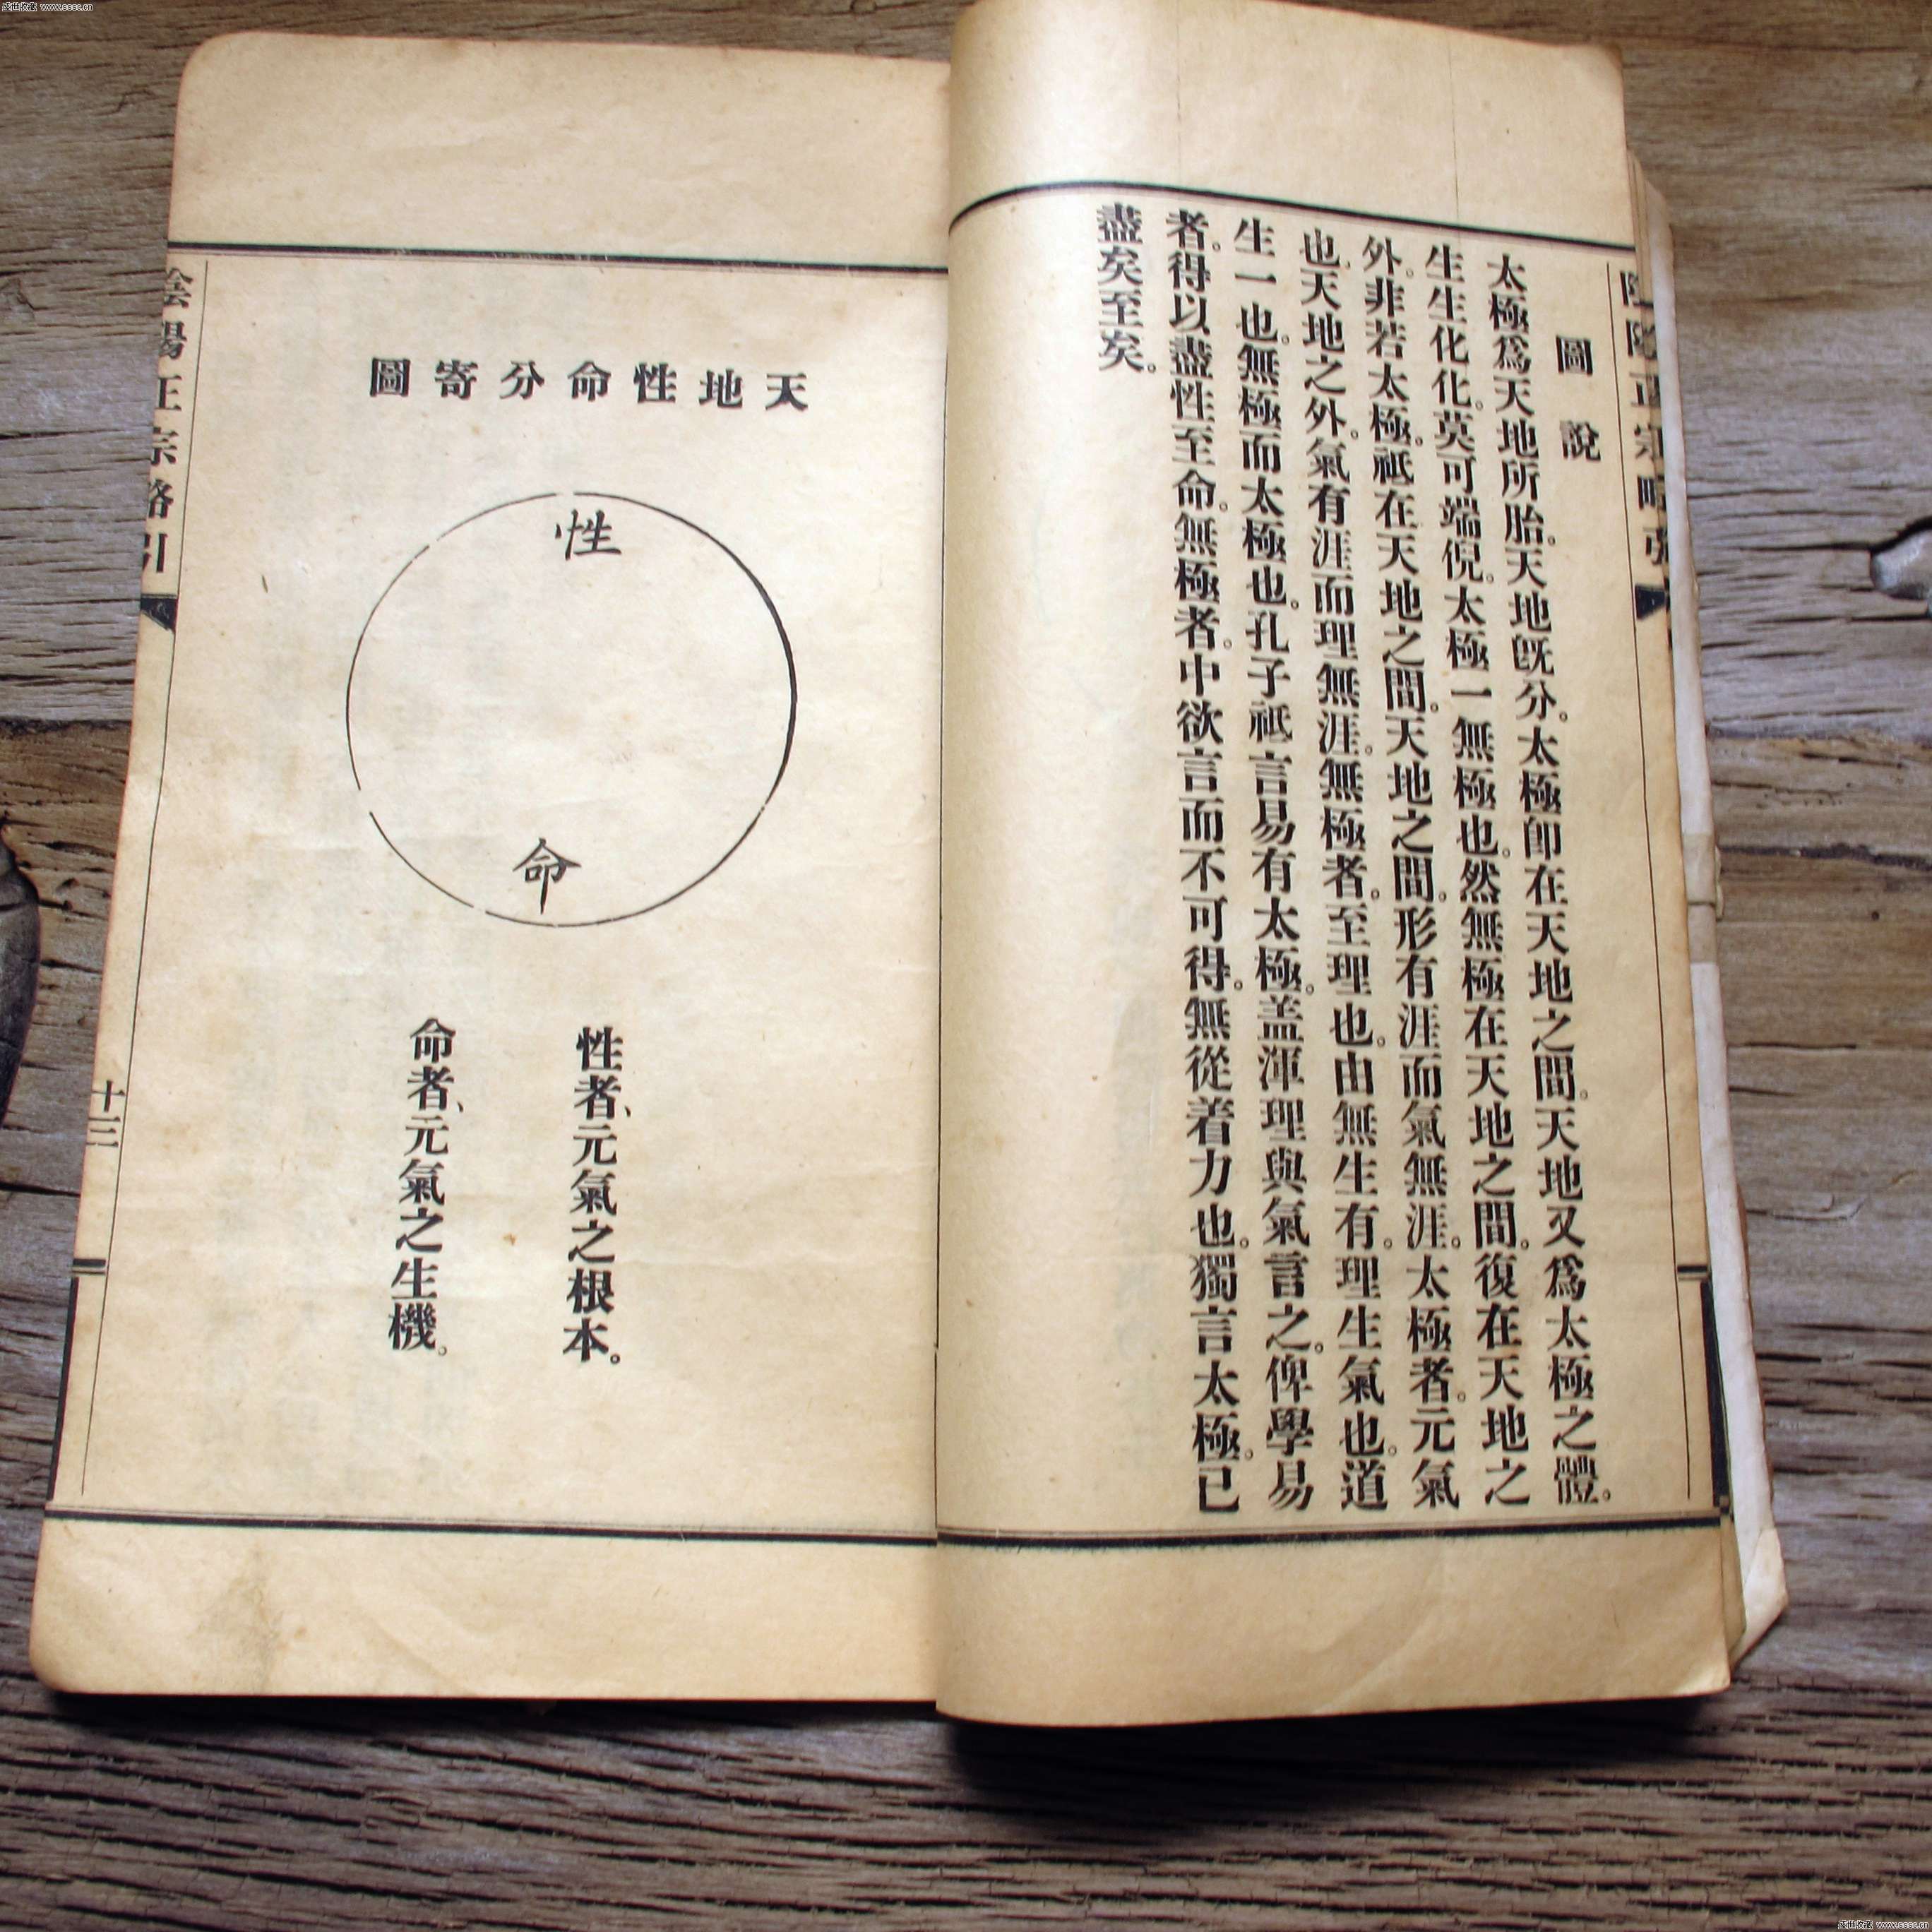 盛世收藏 www.sssc.cn
圖說
太極爲天地所胎。天地旣分。太極卽在天地之間。天地又爲太極之體。
生生化化。莫可端倪。太極一無極也。然無極在天地之間。復在天地之
外。非若太極。祗在天地之間。天地之間。形有涯而氣無涯。太極者。元氣
也。天地之外。氣有涯而理無涯。無極者。至理也。由無生有。理生氣也。道
生一也。無極而太極也。孔子祗言易有太極。盖渾理與氣言之。俾學易
者。得以盡性至命。無極者。中欲言而不可得。無從着力也。獨言太極。已
盡矣至矣。
天地性命分寄圖
性
命
性者、元氣之根本。
命者、元氣之生機。
陰陽正宗略引
十三
盛世收藏 www.sssc.cn